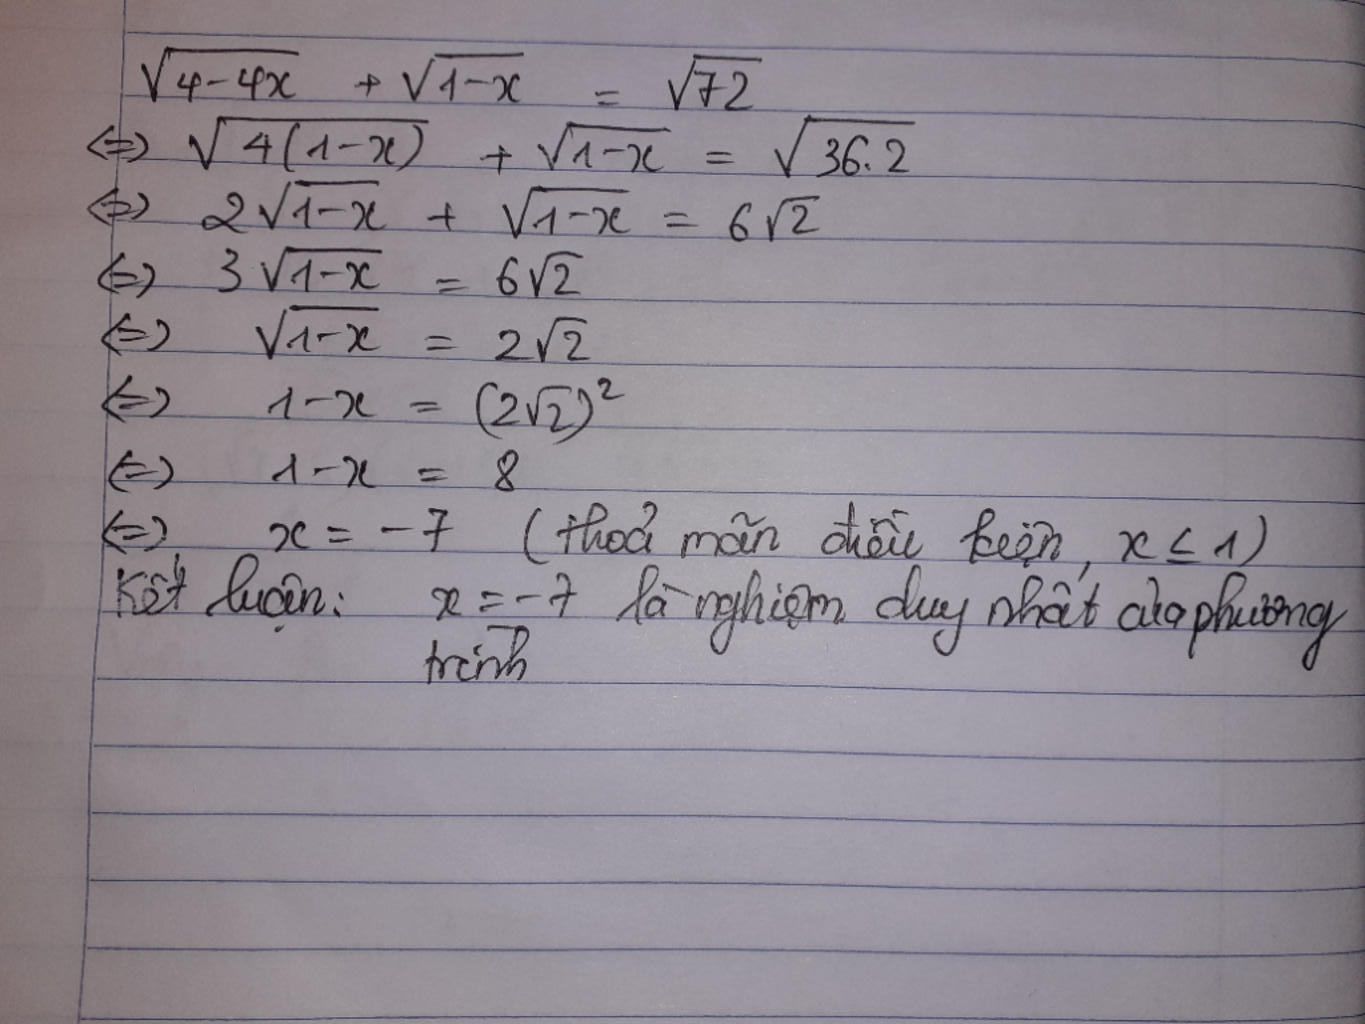 √(4-4x) + √(1-x) = √72
⇔ √(4(1-x)) + √(1-x) = √(36.2)
⇔ 2√(1-x) + √(1-x) = 6√2
⇔ 3√(1-x) = 6√2
⇔ √(1-x) = 2√2
⇔ 1-x = (2√2)²
⇔ 1-x = 8
⇔ x = -7 (thoả mãn điều kiện, x ≤ 1)
Kết luận: x = -7 là nghiệm duy nhất của phương
trình